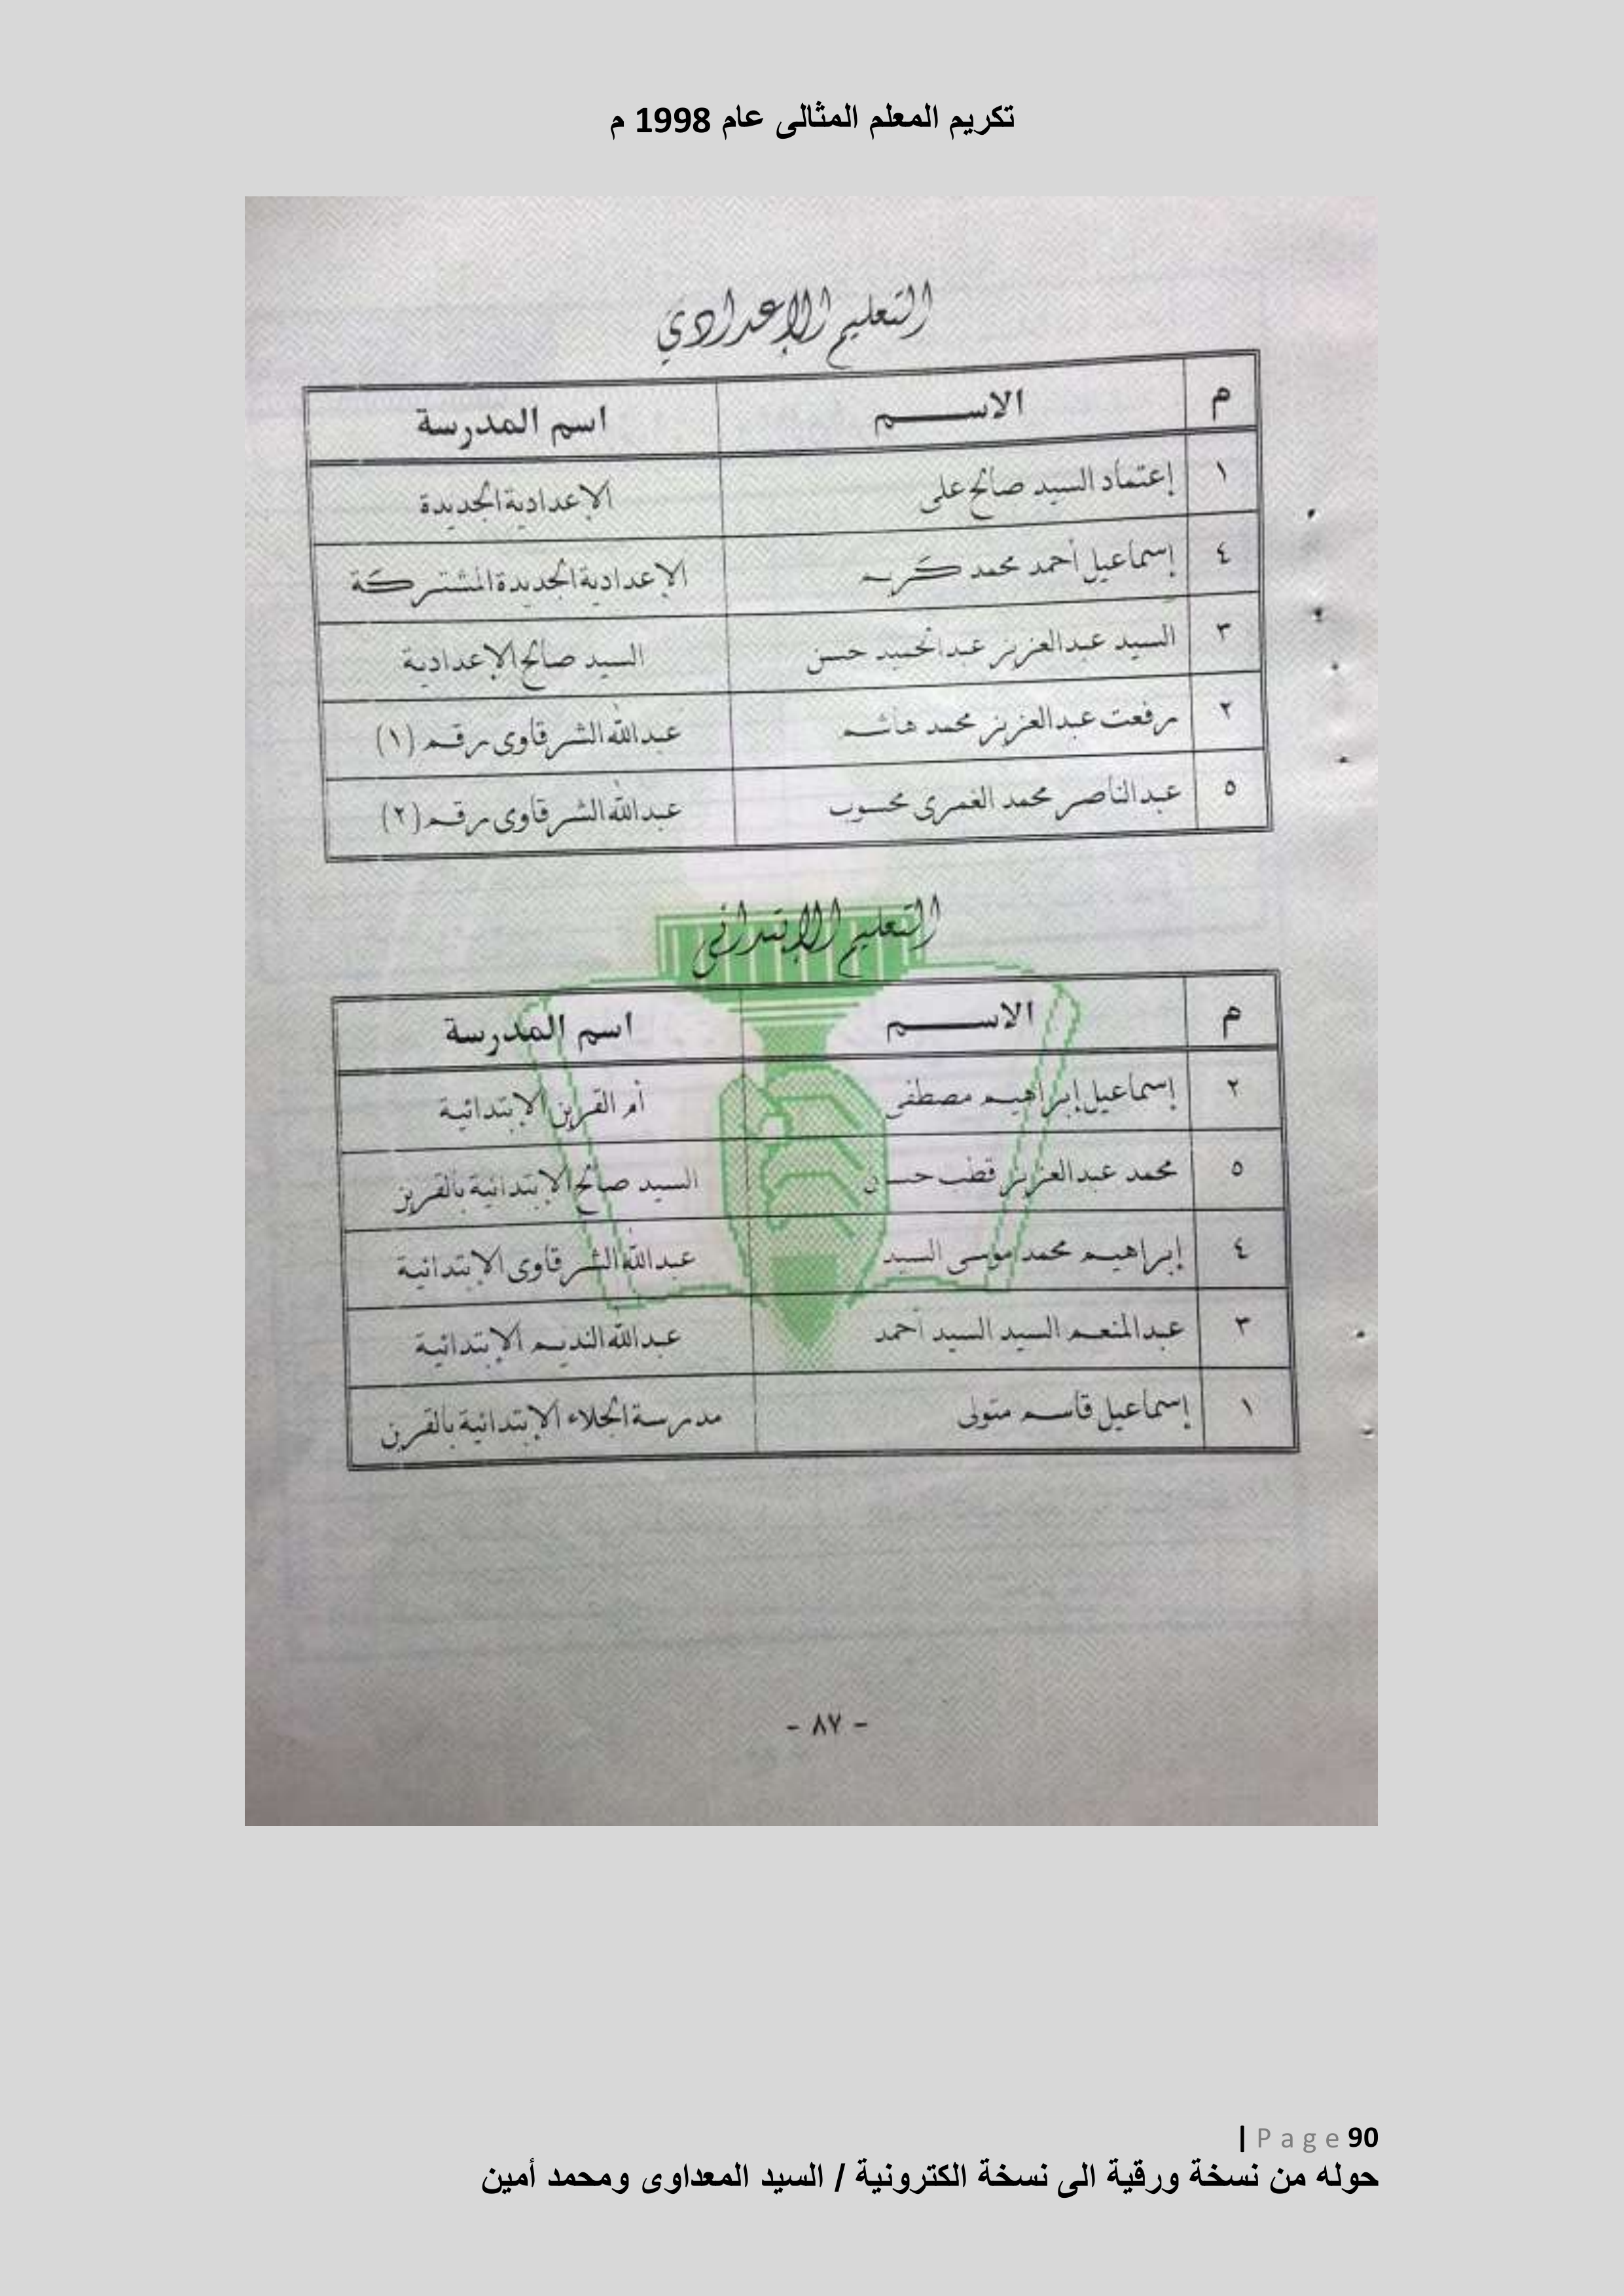 تكريم المعلم المثالى عام 1998 م
التعليم الإعدادي
م الاسم اسم المدرسة
١ إعتماد السيد صالح على الإعدادية الجديدة
٤ إسماعيل أحمد محمد كريم الإعدادية الجديدة المشتركة
٣ السيد عبدالعزيز عبدالحميد حسن السيد صالح الإعدادية
٢ رفعت عبدالعزيز محمد هاشم عبدالله الشرقاوى رقم (١)
٥ عبدالناصر محمد الغمرى محسوب عبدالله الشرقاوى رقم (٢)
التعليم الإبتدائى
م الاسم اسم المدرسة
٢ إسماعيل إبراهيم مصطفى أم القرين الإبتدائية
٥ محمد عبدالعزيز قطب حسن السيد صالح الإبتدائية بالقرين
٤ إبراهيم محمد موسى السيد عبدالله الشرقاوى الإبتدائية
٣ عبدالمنعم السيد السيد أحمد عبدالله النديم الإبتدائية
١ إسماعيل قاسم متولى مدرسة الجلاء الإبتدائية بالقرين
- ٨٧ -
90 Page |
حوله من نسخة ورقية الى نسخة الكترونية / السيد المعداوى ومحمد أمين